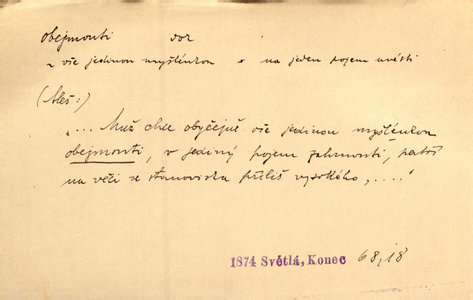 obejmouti vse
~ vše jedinou myšlénkou × na jeden pojem uvésti
(Aleš:)
„... Muž chce obyčejně vše jedinou myšlénkou
obejmouti, v jediný pojem zahrnouti, patří
na věci se stanoviska příliš vysokého, ...."
1874 Světlá, Konec 68,18